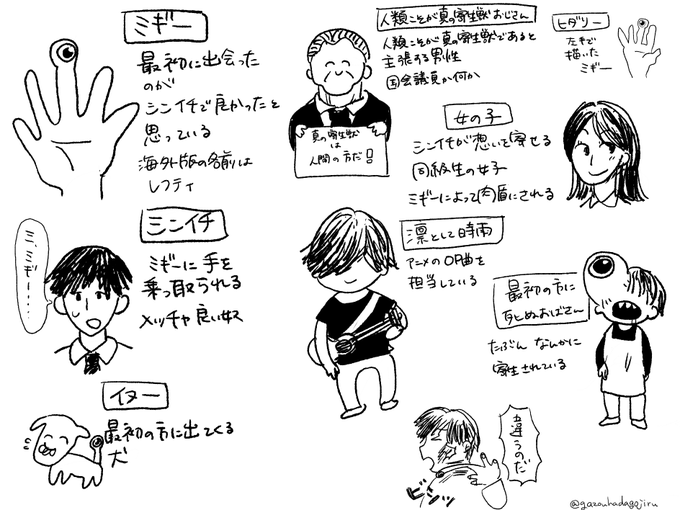 ミギー
最初に出会った
のが
シンイチで良かったと
思っている
海外版の名前は
レフティ
人類こそが真の寄生獣おじさん
人類こそが真の寄生獣であると
主張する男性
国会議員か何か
真の寄生獣
は
人間の方だ!
ヒダリー
左手で
描いた
ミギー
女の子
シンイチが想いを寄せる
同級生の女子
ミギーによって肉盾にされる
シンイチ
ミギーに手を
乗っ取られる
メッチャ良い奴
ミ、ミギー・・・・
凛として時雨
アニメのOP曲を
担当している
最初の方に
死ぬおばさん
たぶん なんかに
寄生されている
イヌー
最初の方に出てくる
犬
違うのだ
ビシッ
@gazouhadagajiru